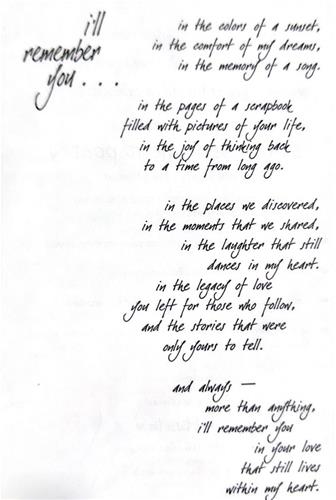 i'll
remember
you . . .
in the colors of a sunset,
in the comfort of my dreams,
in the memory of a song.
in the pages of a scrapbook
filled with pictures of your life,
in the joy of thinking back
to a time from long ago.
in the places we discovered,
in the moments that we shared,
in the laughter that still
dances in my heart.
in the legacy of love
you left for those who follow,
and the stories that were
only yours to tell.
and always —
more than anything,
i'll remember you
in your love
that still lives
within my heart.